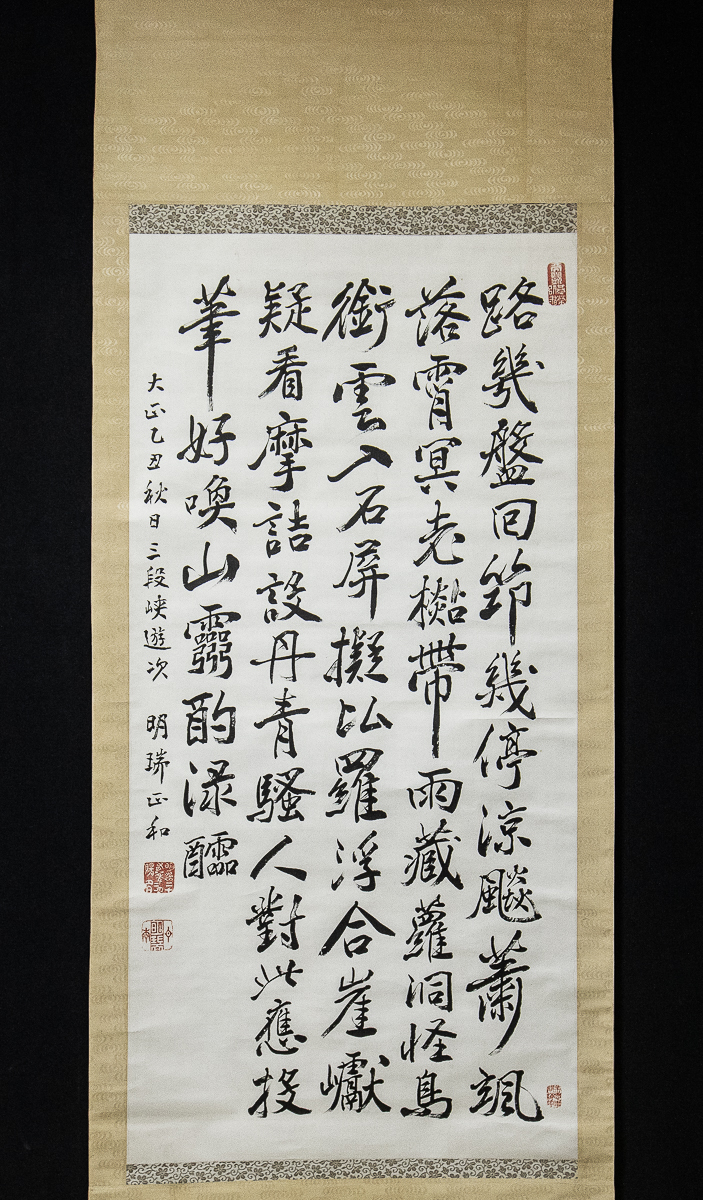 路幾盤回筇幾停涼飈蕭颯
落霄冥老帶雨藏蘿洞怪鳥
銜雲入石屏擬比羅浮合崖巘
疑看摩詰設丹青騷人對此應投
筆好喚山靈酌淥醽
大正乙丑秋日三段峽遊次 明瑞正和